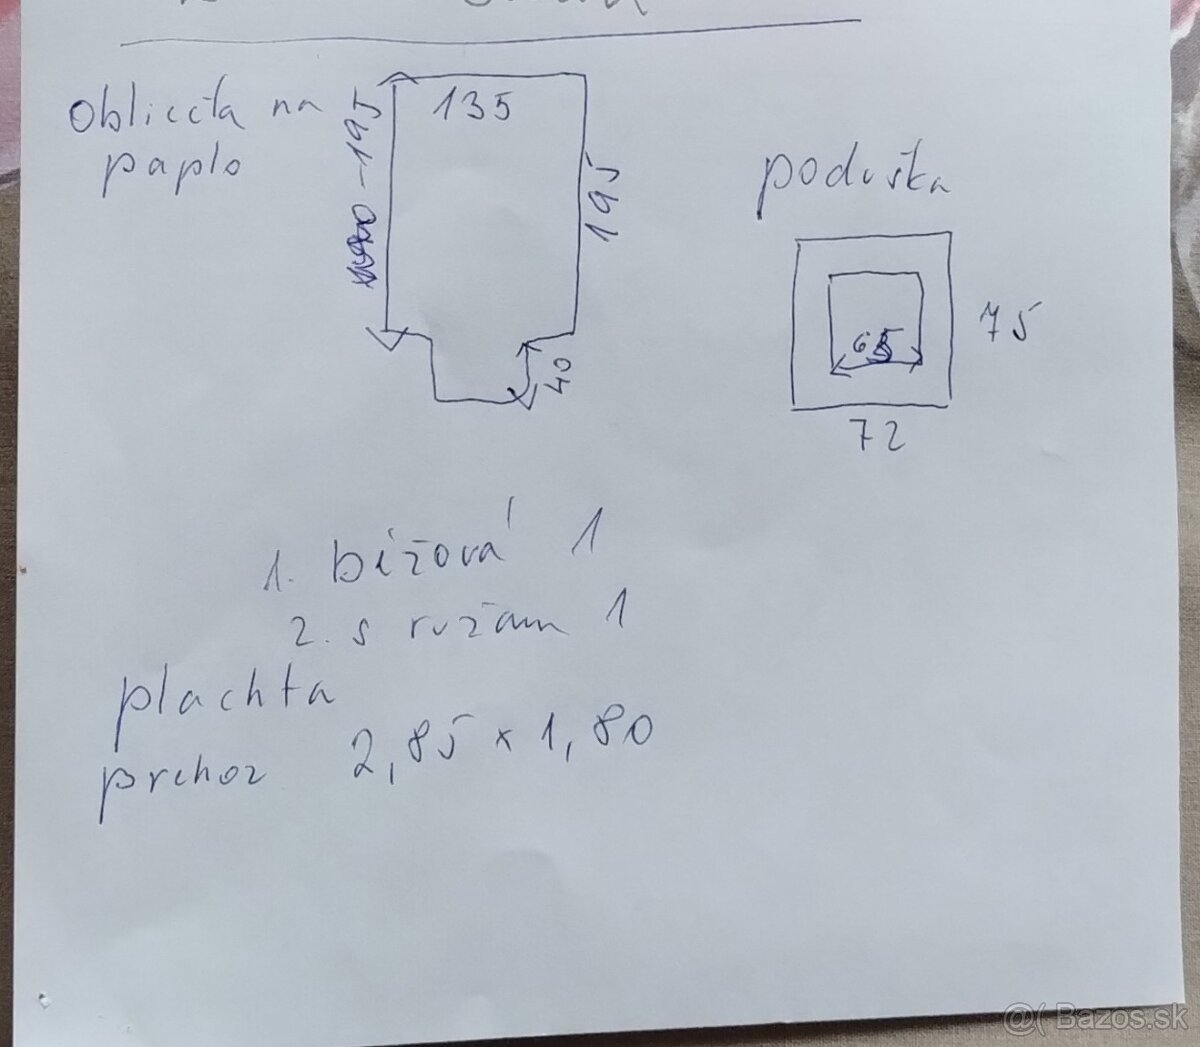 Obliečka na
paplo
135
-195
195
40
poduška
65
75
72
1. bižová 1
2. s ružam 1
plachta
prehoz 2,85 x 1,80
@( Bazos.sk